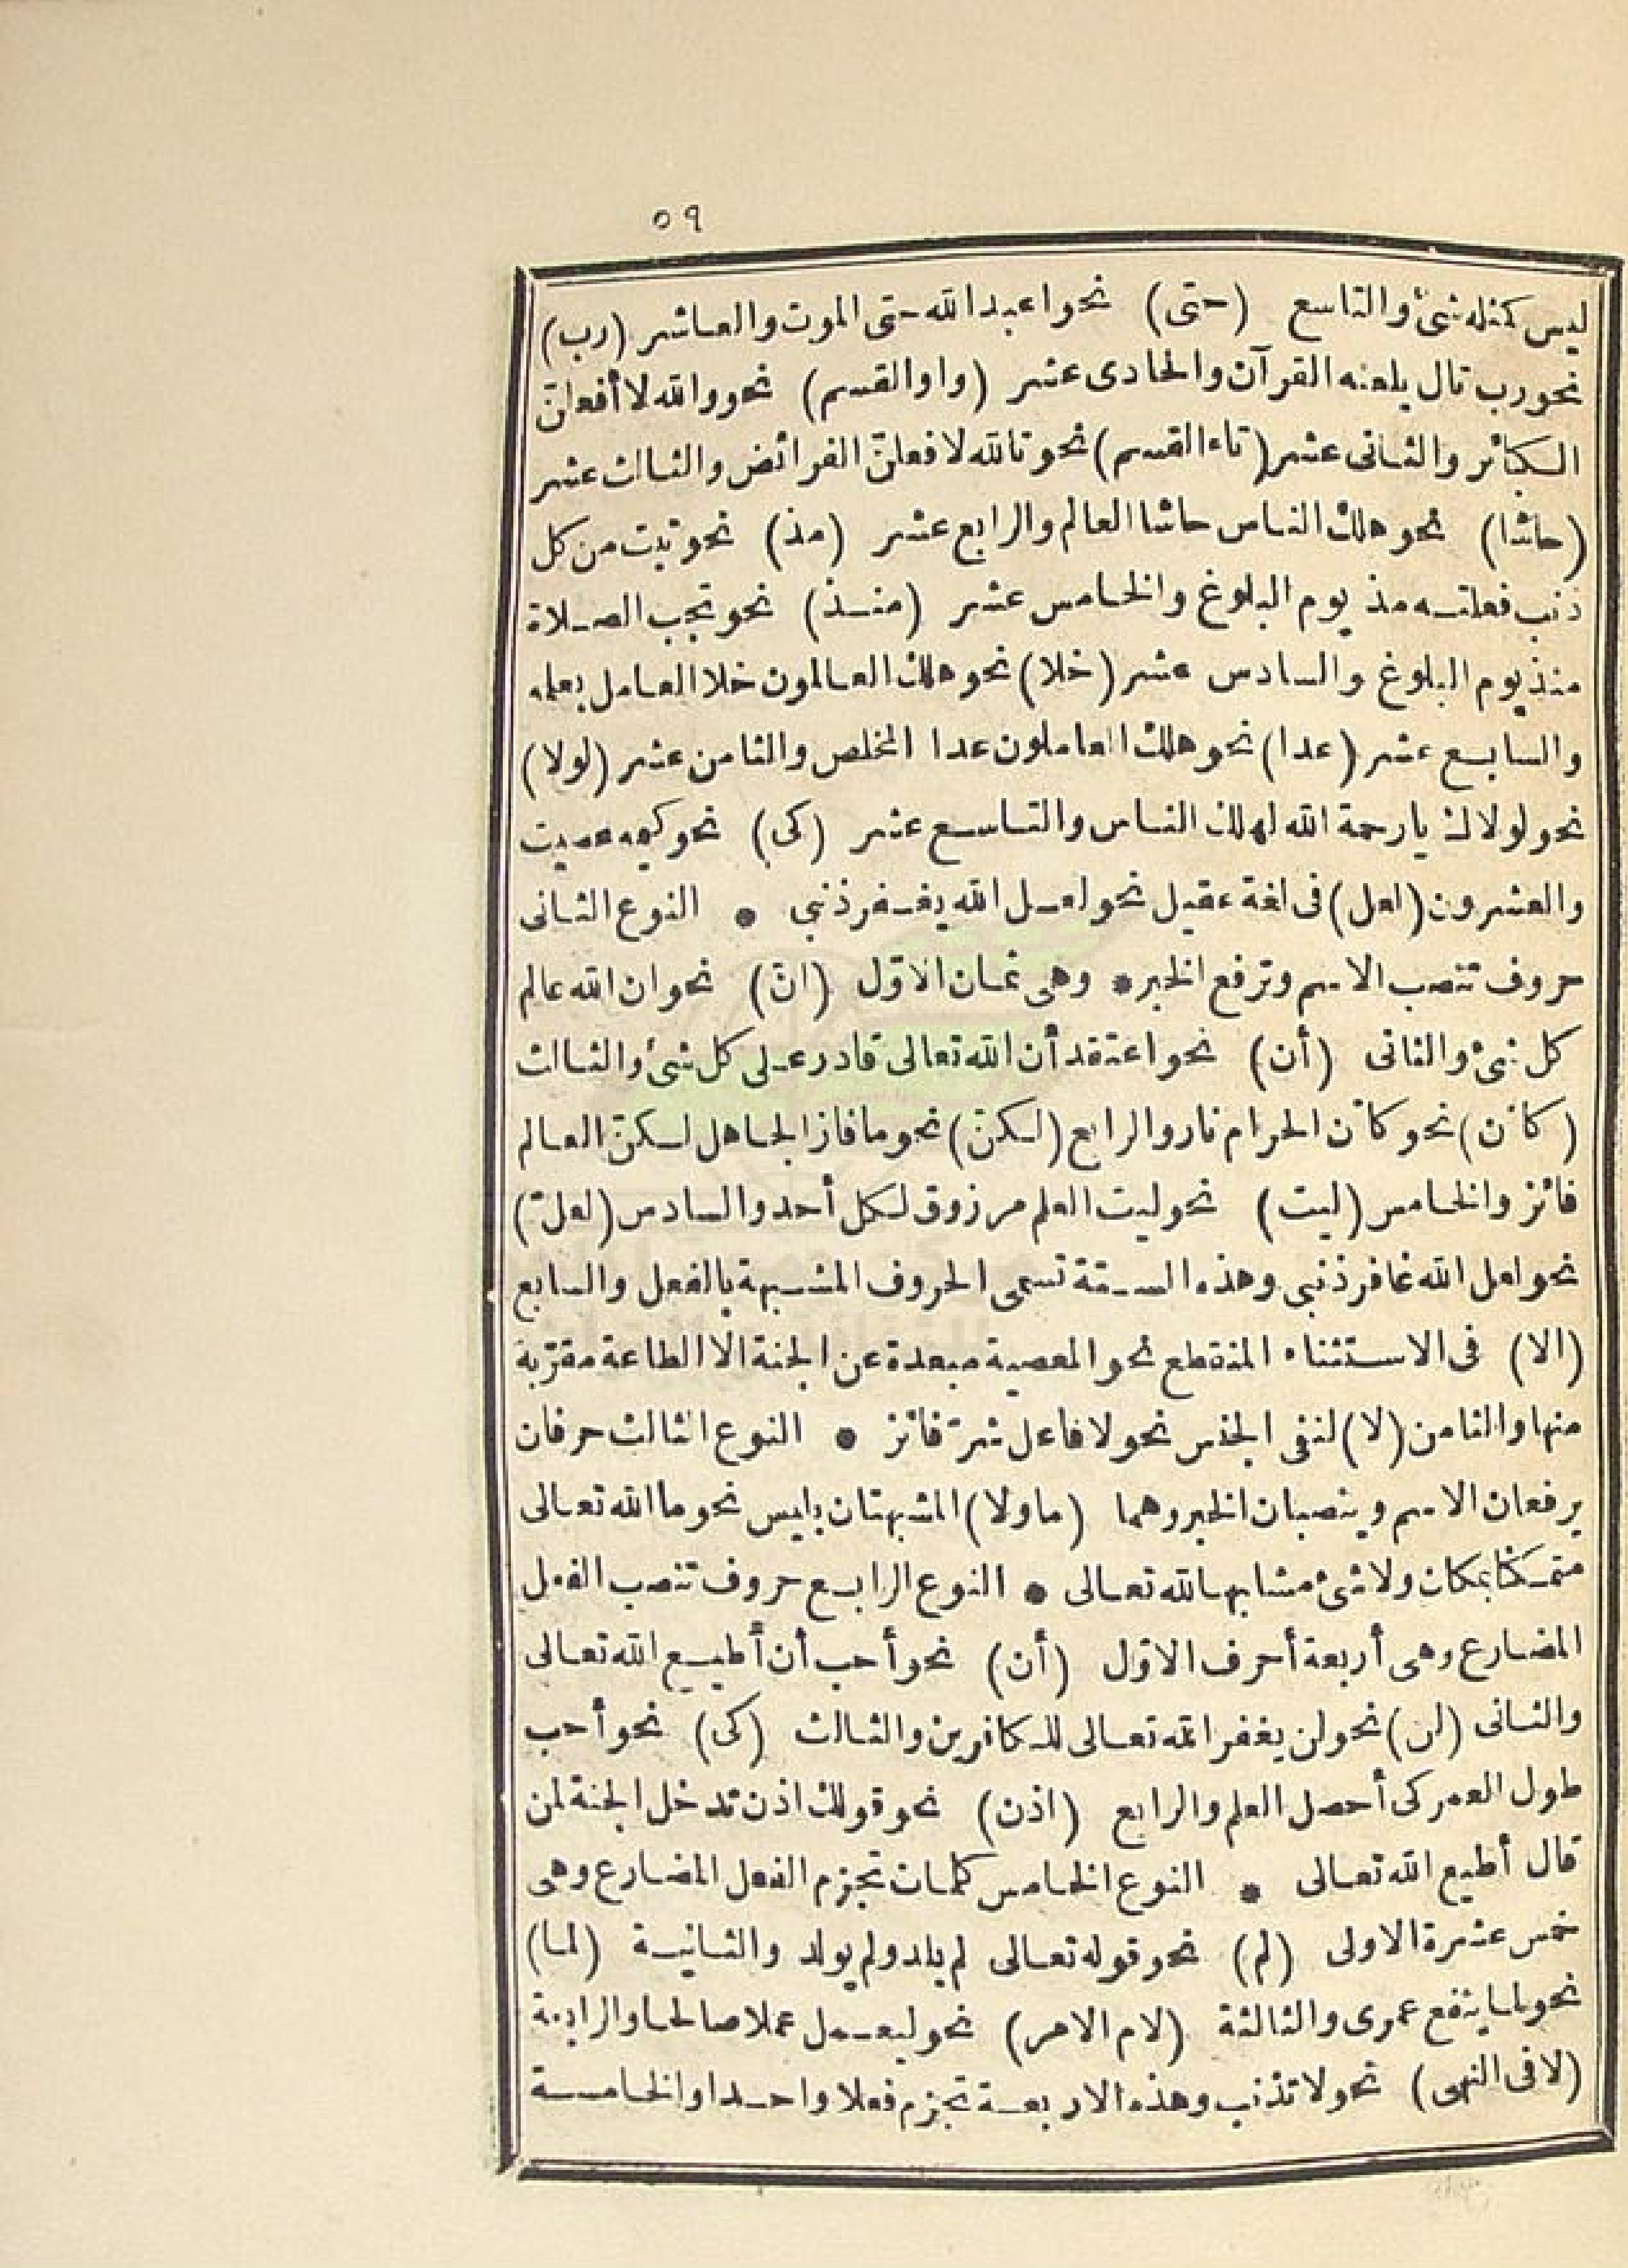 ٥٩
ليس كمثله شئ والتاسع (حتى) نحو اعبد الله حتى الموت والعاشر (رب)
نحو رب تال يلعنه القرآن والحادى عشر (واو القسم) نحو والله لا أفعلن
الكبائر والثانى عشر (تاء القسم) نحو تالله لافعلن الفرائض والثالث عشر
(حاشا) نحو هلك الناس حاشا العالم والرابع عشر (مذ) نحو تبت من كل
ذنب فعلته مذ يوم البلوغ والخامس عشر (منذ) نحو تجب الصلاة
منذ يوم البلوغ والسادس عشر (خلا) نحو هلك العالمون خلا العامل بعلمه
والسابع عشر (عدا) نحو هلك العاملون عدا المخلص والثامن عشر (لولا)
نحو لولاك يا رحمة الله لهلك الناس والتاسع عشر (كى) نحو كيمه عصيت
والعشرون (لعل) فى لغة عقيل نحو لعل الله يغفر ذنبى * النوع الثانى
حروف تنصب الاسم وترفع الخبر * وهى ثمان الاوّل (انّ) نحو ان الله عالم
كل شئ والثانى (أن) نحو اعتقد أن الله تعالى قادر على كل شئ والثالث
(كأن) نحو كأن الحرام نار والرابع (لكنّ) نحو ما فاز الجاهل لكنّ العالم
فائز والخامس (ليت) نحو ليت العلم مرزوق لكل أحد والسادس (لعلّ)
نحو لعل الله غافر ذنبى وهذه الستة تسمى الحروف المشبهة بالفعل والسابع
(الا) فى الاستثناء المنقطع نحو المعصية مبعدة عن الجنة الا الطاعة مقرّبة
منها والثامن (لا) لنفى الجنس نحو لا فاعل شرّ فائز * النوع الثالث حرفان
يرفعان الاسم وينصبان الخبر وهما (ما ولا) المشبهتان بليس نحو ما الله تعالى
متمكنا بمكان ولا شئ مشابها لله تعالى * النوع الرابع حروف تنصب الفعل
المضارع وهى أربعة أحرف الاوّل (أن) نحو أحب أن أطيع الله تعالى
والثانى (لن) نحو لن يغفر الله تعالى للكافرين والثالث (كى) نحو أحب
طول العمر كى أحصل العلم والرابع (اذن) نحو قولك اذن تدخل الجنة لمن
قال أطيع الله تعالى * النوع الخامس كلمات تجزم الفعل المضارع وهى
خمس عشرة الاولى (لم) نحو قوله تعالى لم يلد ولم يولد والثانية (لما)
نحو لما ينفع عمرى والثالثة (لام الامر) نحو ليعمل عملا صالحا والرابعة
(لا فى النهى) نحو لا تذنب وهذه الاربعة تجزم فعلا واحدا والخامسة